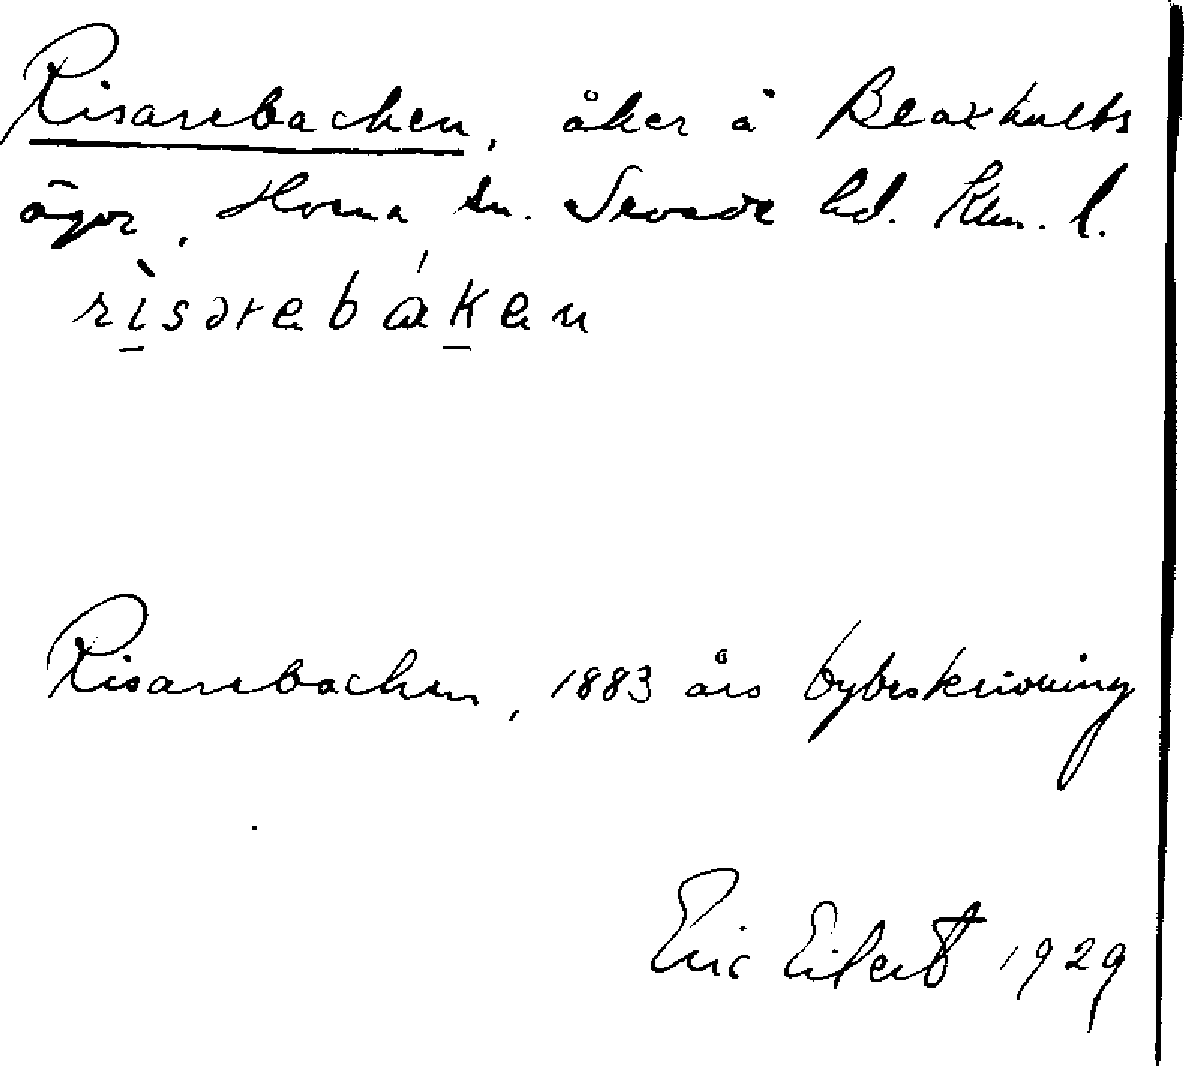 Risarebacken, åker å Bloxhults
ägor, Horna sn. Sevede hd. Klm. l.
rìsərebáken
Risarebacken, 1883 års bybeskrivning
Eric Eilert 1929